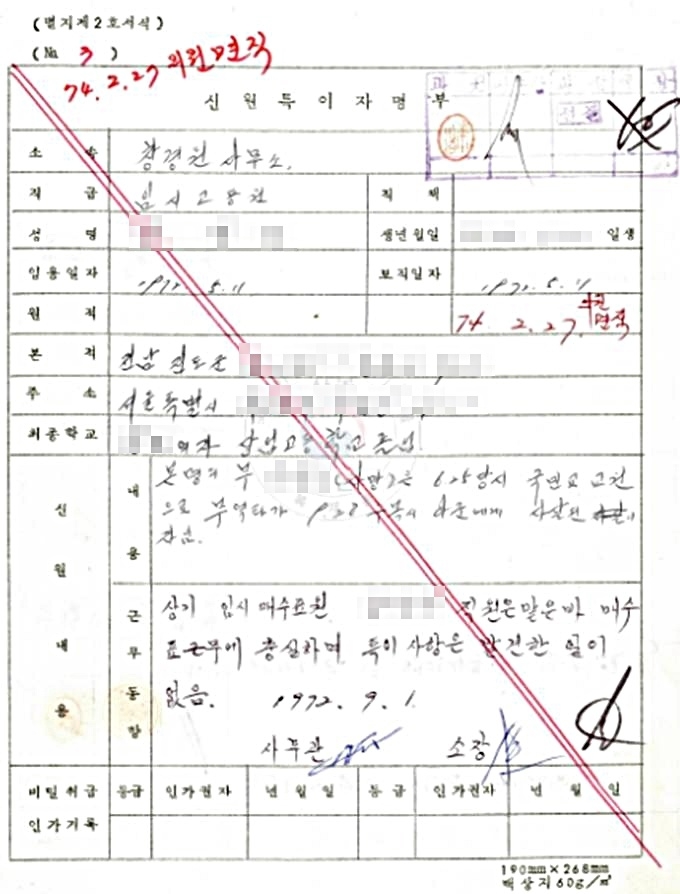 (별지제2호서식)
(№ 3)
74. 2. 27 의원면직
신원특이자명부
소속 창경원 사무소.
직급 임시고용원 직책
성명 생년월일 일생
임용일자 1972. 5. 11 보직일자 1972. 5. 11
원적 74. 2. 27. 의원면직
본적 전남 진도군
주소 서울특별시
최종학교 여자 상업고등학교 졸업
신원내용
내용
본명의 부 (사망)는 6.25당시 국민교 교원
으로 부역타가 아군에게 사살된
자임.
근무동향
상기 임시 매수표원 직원은 맡은바 매수
표근무에 충실하며 특이 사항은 발견한 일이
없음. 1972. 9. 1.
사무관 소장
비밀취급인가기록 등급 인가권자 년월일 등급 인가권자 년월일
190mm×268mm
백상지 60g/㎡